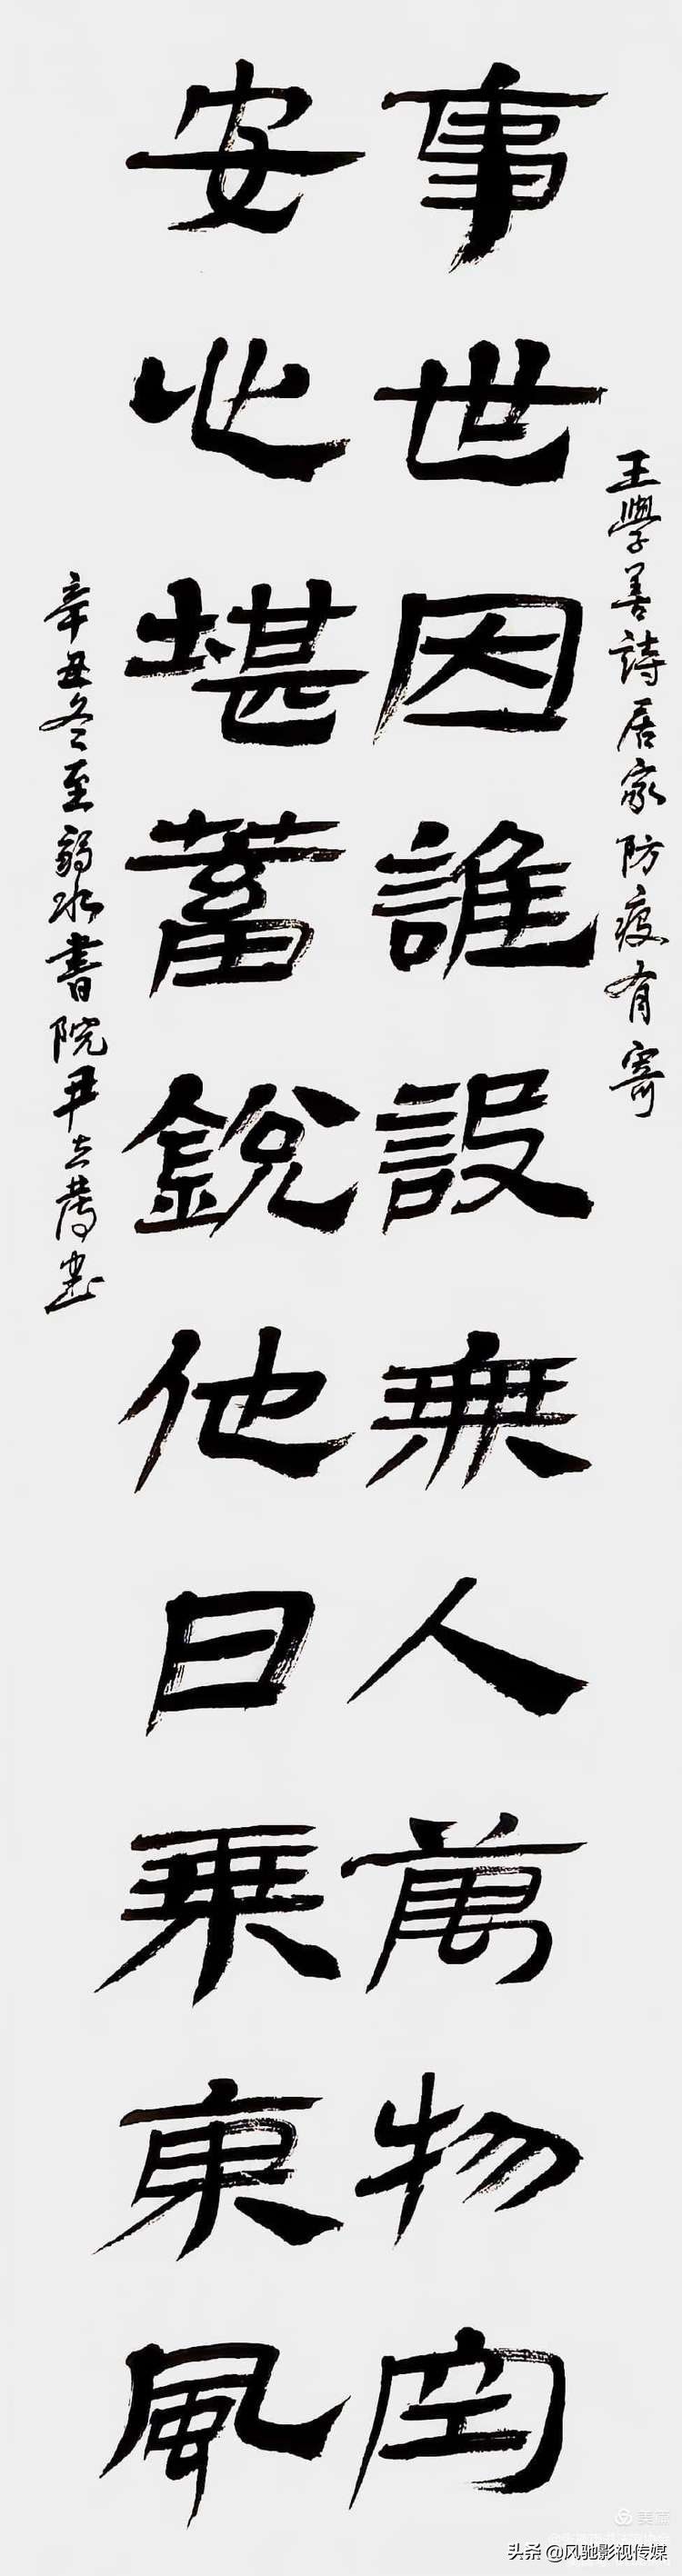 王學善詩居家防疫有寄
事世因誰設無人萬物空
安心堪蓄銳他日乘東風
辛丑冬至弱水書院尹書
美篇
头条 @风驰影视传媒